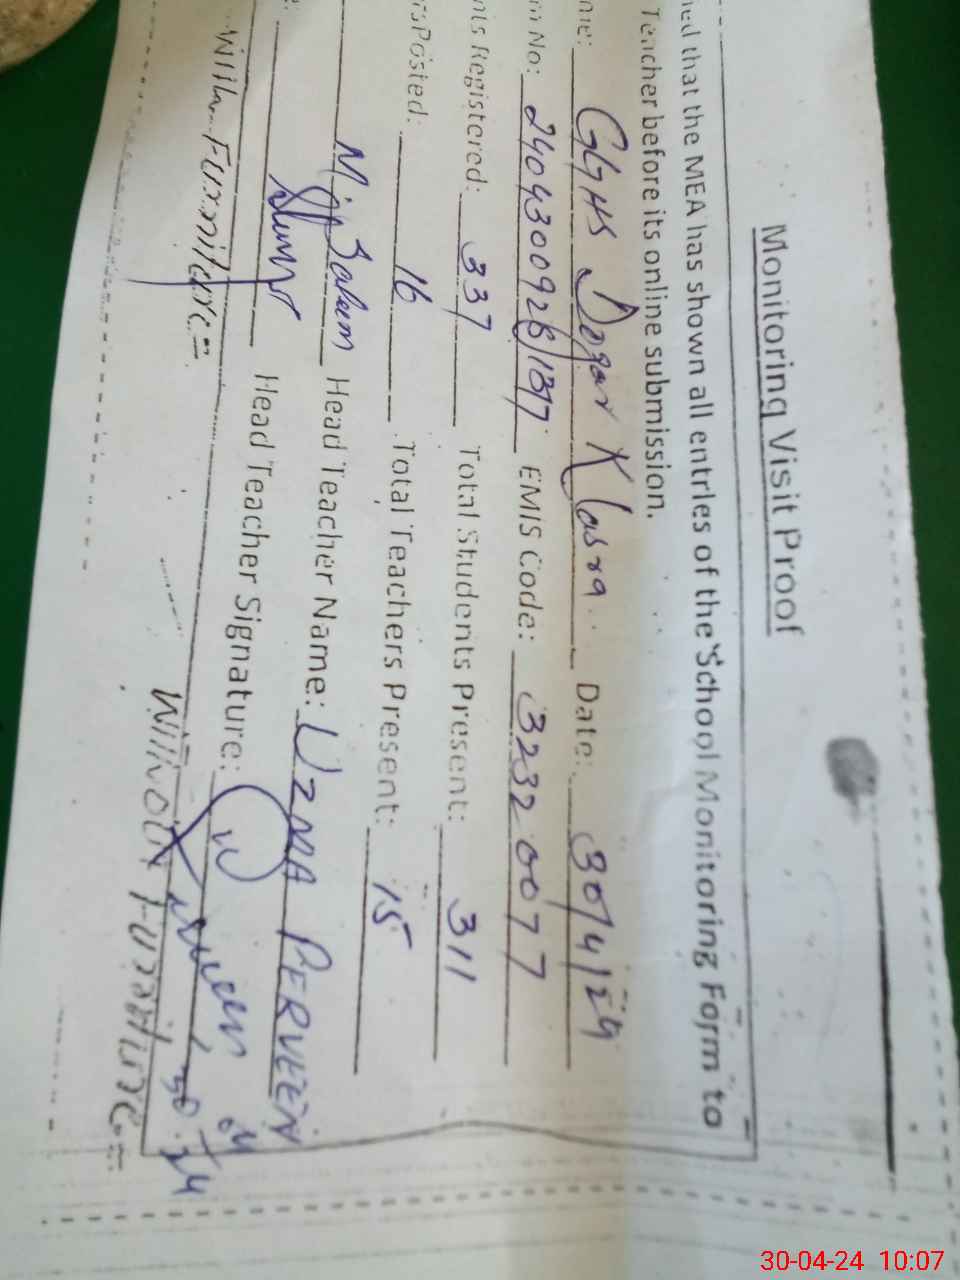 Monitoring Visit Proof
ned that the MEA has shown all entries of the School Monitoring Form to
Teacher before its online submission.
me: GGHS Dogar Klasra Date: 30/4/24
m No: 24043009 EMIS Code: 32320077
nts Registered: 337 Total Students Present: 311
rs Posted: 16 Total Teachers Present: 15
M. Saleem Head Teacher Name: UZMA PERVEEN
e: Head Teacher Signature:
30.04.24
With Furniture= Without Furniture=
30-04-24 10:07